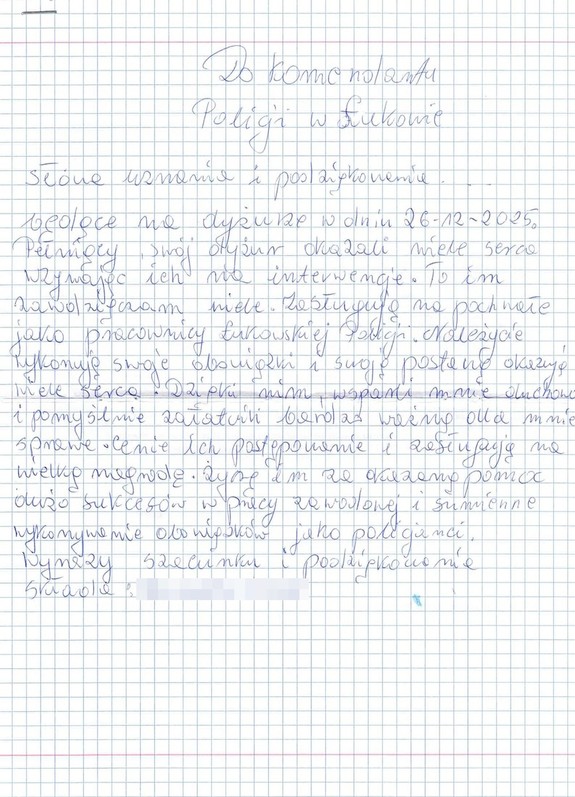 Do komendantu
Poligji w Łukowie
Słowa uznania i podziękowania.
będące na dyżuże w dniu 26-12-2025.
Pełniący swój dyżur okazali wiele serca
wzywając ich na interwencje. To im
zawdzięczam wiele. Zasługują na pochwałe
jako pracownicy Łukowskiej Poligji. Należycie
wykonują swoje obowiązki i swoją postawą okazują
wiele serca. Dzięki nim, wsparli mnie duchowo
i pomyślnie załatwili bardzo ważną dla mnie
sprawe. Cenie ich postępowanie i zasługują na
wielką nagrodę. Życzę im za okazaną pomoc
dużo sukcesów w pracy zawodowej i sumienne
wykonywanie obowiązków jako poligjanci.
Wyrazy szacunku i podziękowania
składa :